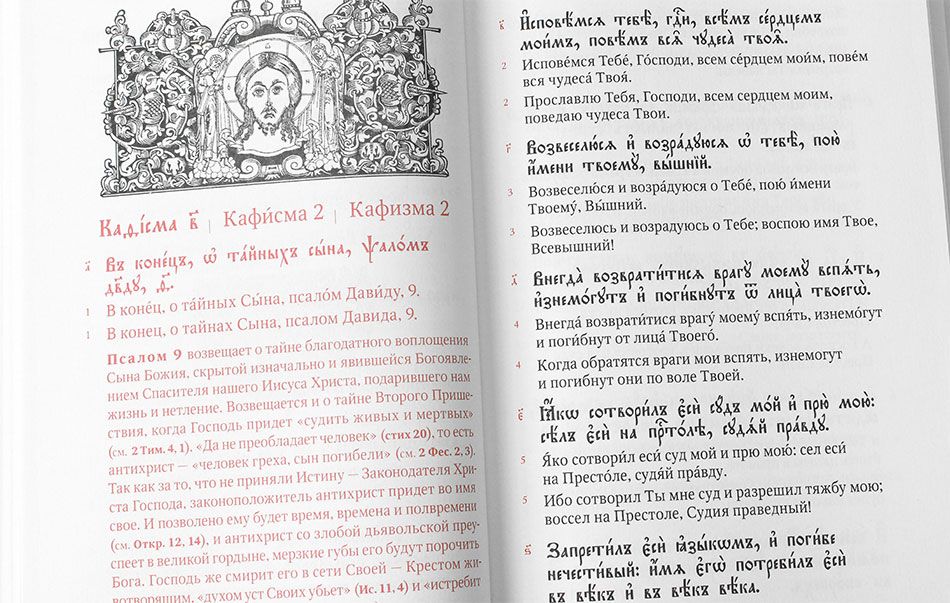 Каѳі́сма в҃ | Кафи́сма 2 | Кафизма 2
а҃ Въ коне́цъ, ѡ҆ та́йныхъ сы́на, ѱало́мъ
дв҃ду, ѳ҃.
1 В коне́ц, о та́йных Сы́на, псало́м Дави́ду, 9.
1 В конец, о тайнах Сына, псалом Давида, 9.
Псалом 9 возвещает о тайне благодатного воплощения
Сына Божия, скрытой изначально и явившейся Богоявле-
нием Спасителя нашего Иисуса Христа, подарившего нам
жизнь и нетление. Возвещается и о тайне Второго Прише-
ствия, когда Господь придет «судить живых и мертвых»
(см. 2 Тим. 4, 1). «Да не преобладает человек» (стих 20), то есть
антихрист — «человек греха, сын погибели» (см. 2 Фес. 2, 3).
Так как за то, что не приняли Истину — Законодателя Хри-
ста Господа, законоположитель антихрист придет во имя
свое. И позволено ему будет время, времена и полвремени
(см. Откр. 12, 14), и антихрист со злобой дьявольской преу-
спеет в великой гордыне, мерзкие губы его будут порочить
Бога. Господь же смирит его в сети Своей — Крестом жи-
вотворящим, «духом уст Своих убьет» (Ис. 11, 4) и «истребит
в҃ И҆сповѣ́мсѧ тебѣ̀, гдⷭ҇и, всѣ́мъ се́рдцемъ
мои́мъ, повѣ́мъ всѧ̑ чꙋдеса̀ твоѧ̑.
2 Испове́мся Тебе́, Го́споди, всем се́рдцем мои́м, пове́м
вся чудеса́ Твоя́.
2 Прославлю Тебя, Господи, всем сердцем моим,
поведаю чудеса Твои.
г҃ Возвеселю́сѧ и҆ возра́дꙋюсѧ ѡ҆ тебѣ̀, пою̀
и҆́мени твоемꙋ̀, вы́шнїй.
3 Возвеселю́ся и возра́дуюся о Тебе́, пою́ и́мени
Твоему́, Вы́шний.
3 Возвеселюсь и возрадуюсь о Тебе; воспою имя Твое,
Всевышний!
д҃ Внегда̀ возврати́тисѧ врагꙋ̀ моемꙋ̀ вспѧ́ть,
и҆знемо́гꙋтъ и҆ поги́бнꙋтъ ѿ лица̀ твоегѡ̀.
4 Внегда́ возврати́тися врагу́ моему́ вспя́ть, изнемо́гут
и поги́бнут от лица́ Твоего́.
4 Когда обратятся враги мои вспять, изнемогут
и погибнут они по воле Твоей.
є҃ Ꙗ҆́кѡ сотвори́лъ є҆сѝ сꙋ́дъ мо́й и҆ прю̀ мою̀:
сѣ́лъ є҆сѝ на прⷭ҇то́лѣ, сꙋдѧ́й пра́вдꙋ.
5 Я́ко сотвори́л еси́ суд мой и прю мою́: сел еси́
на Престо́ле, судя́й пра́вду.
5 Ибо сотворил Ты мне суд и разрешил тяжбу мою;
воссел на Престоле, Судия праведный!
ѕ҃ Запрети́лъ є҆сѝ ꙗ҆зы́кѡмъ, и҆ поги́бе
нечести́вый: и҆́мѧ є҆гѡ̀ потреби́лъ є҆сѝ
въ вѣ́къ и҆ въ вѣ́къ вѣ́ка.